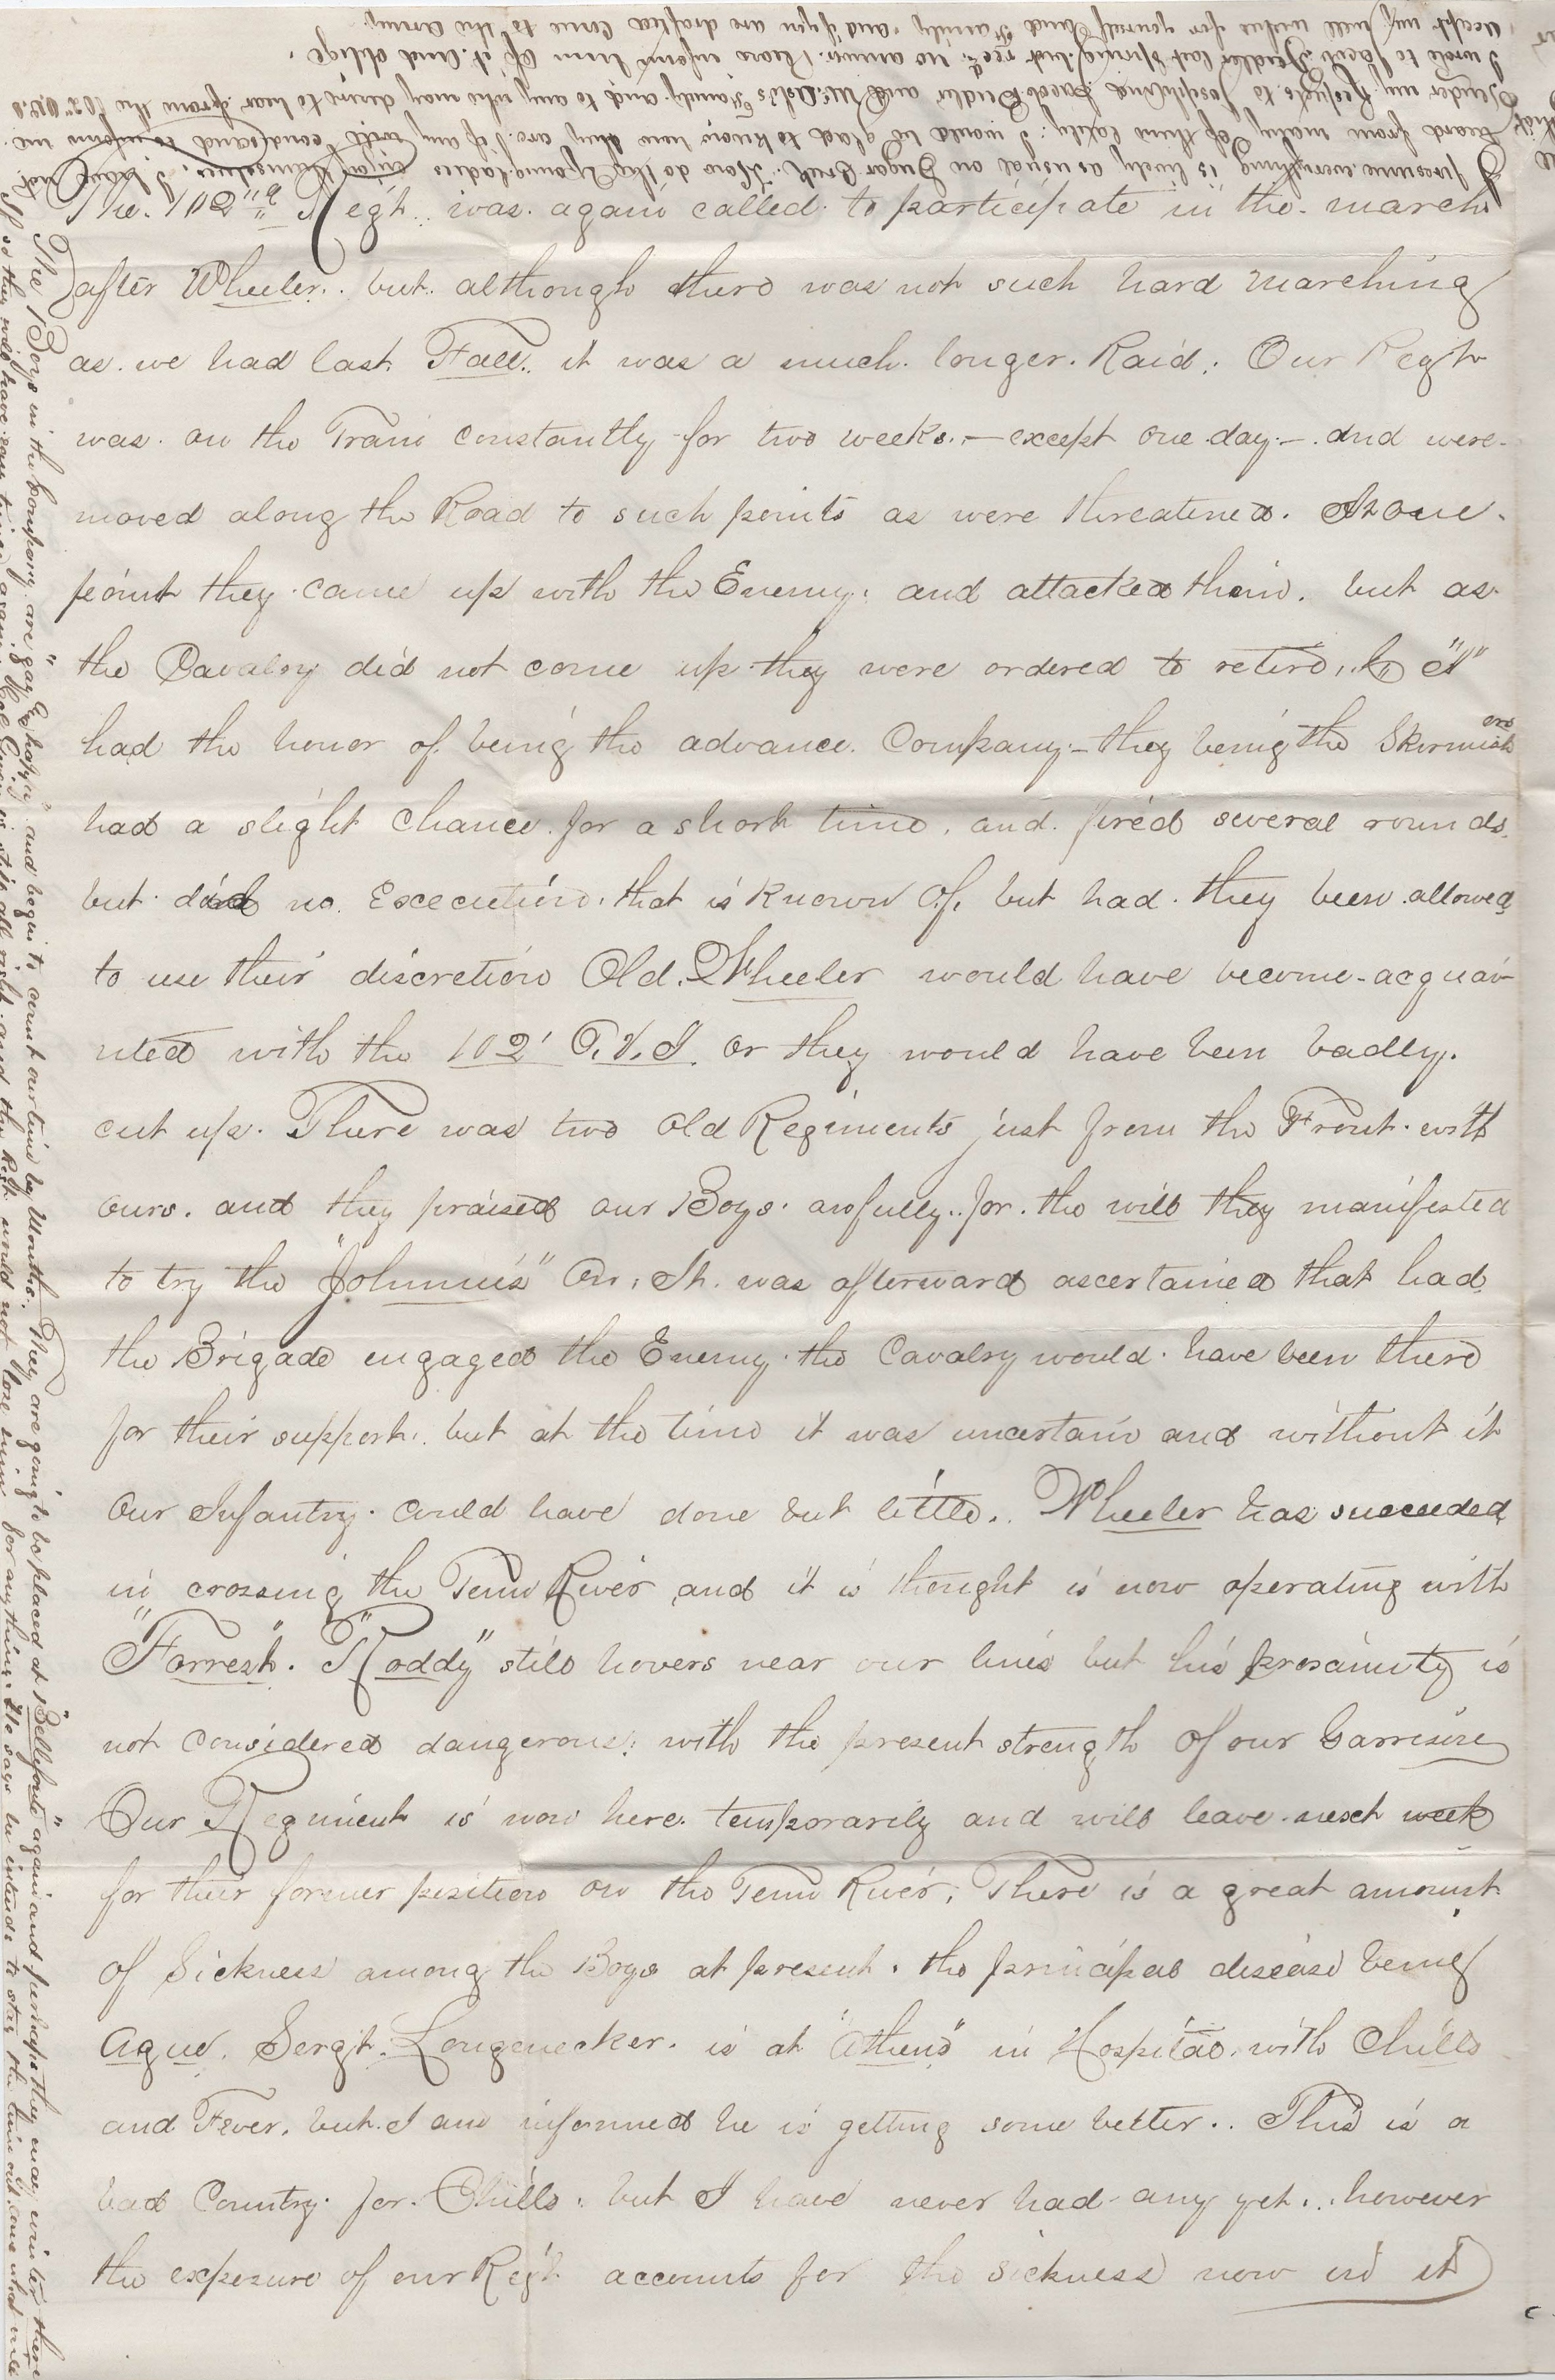 The 102nd Regt. was again called to participate in the march
after Wheeler. but although there was not such hard marching
as we had last Fall. it was a much longer Raid. Our Regt
was on the Train constantly for two weeks. – except one day – and were
moved along the Road to such points as were threatened. At one
point they came up with the Enemy. and attacked them. but as
the Cavalry did not come up they were ordered to retire. Co
had the honor of being the advance Company – they being the Skirmishers
had a slight chance for a short time. and fired several rounds
but did no Excecution. that is known of. but had they been allowed
to use their discretion Old Wheeler would have become acquai-
nted with the 102' O.V.I. or they would have been badly
cut up. There was two old Regiments just from the Front with
ours. and they praised our Boys awfully. for the will they manifested
to try the "Johnnies" on. It was afterward ascertained that had
the Brigade engaged the Enemy the Cavalry would have been there
for their support. but at the time it was uncertain and without it
our Infantry could have done but little. Wheeler has succeeded
in crossing the Tenn River and it is thought is now operating with
"Forrest". "Roddy" still hovers near our lines but his proximity is
not considered dangerous. with the present strength of our Garrison
Our Regiment is now here temporarily and will leave next week
for their former position on the Tenn River. There is a great amount
of Sickness among the Boys at present. the principal disease being
Ague. Sergt. Longenecker. is at "Athens" in Hospital. with Chills
and Fever. but I am informed he is getting some better.. This is a
bad Country for Chills. but I have never had any yet... however
the exposure of our Regt accounts for the sickness now in it
The Boys in the Company are "gay & happy" and begin to count our time by Months. They are going to be placed at "Bellefonte" again and perhaps they may winter there
If so they will have gay times again. is still all right. and the Regt would not lose him for anything. He says he intends to stay the time out. come what will
I presume everything is lively as usual on Sugar Creek. How do the Young ladies enjoy themselves. I have not
heard from many of them lately. I would be glad to know how they are. if any will condescend to inform me
Tender my Respects to Josephine Jacob and Family. and to any who may desire to hear from the 102nd O.V.I.
I wrote to Jacob last Spring but recd. no answer. Please inform him of it. And oblige
Accept my well wishes for yourself and Family. and if you are drafted come to the Army.